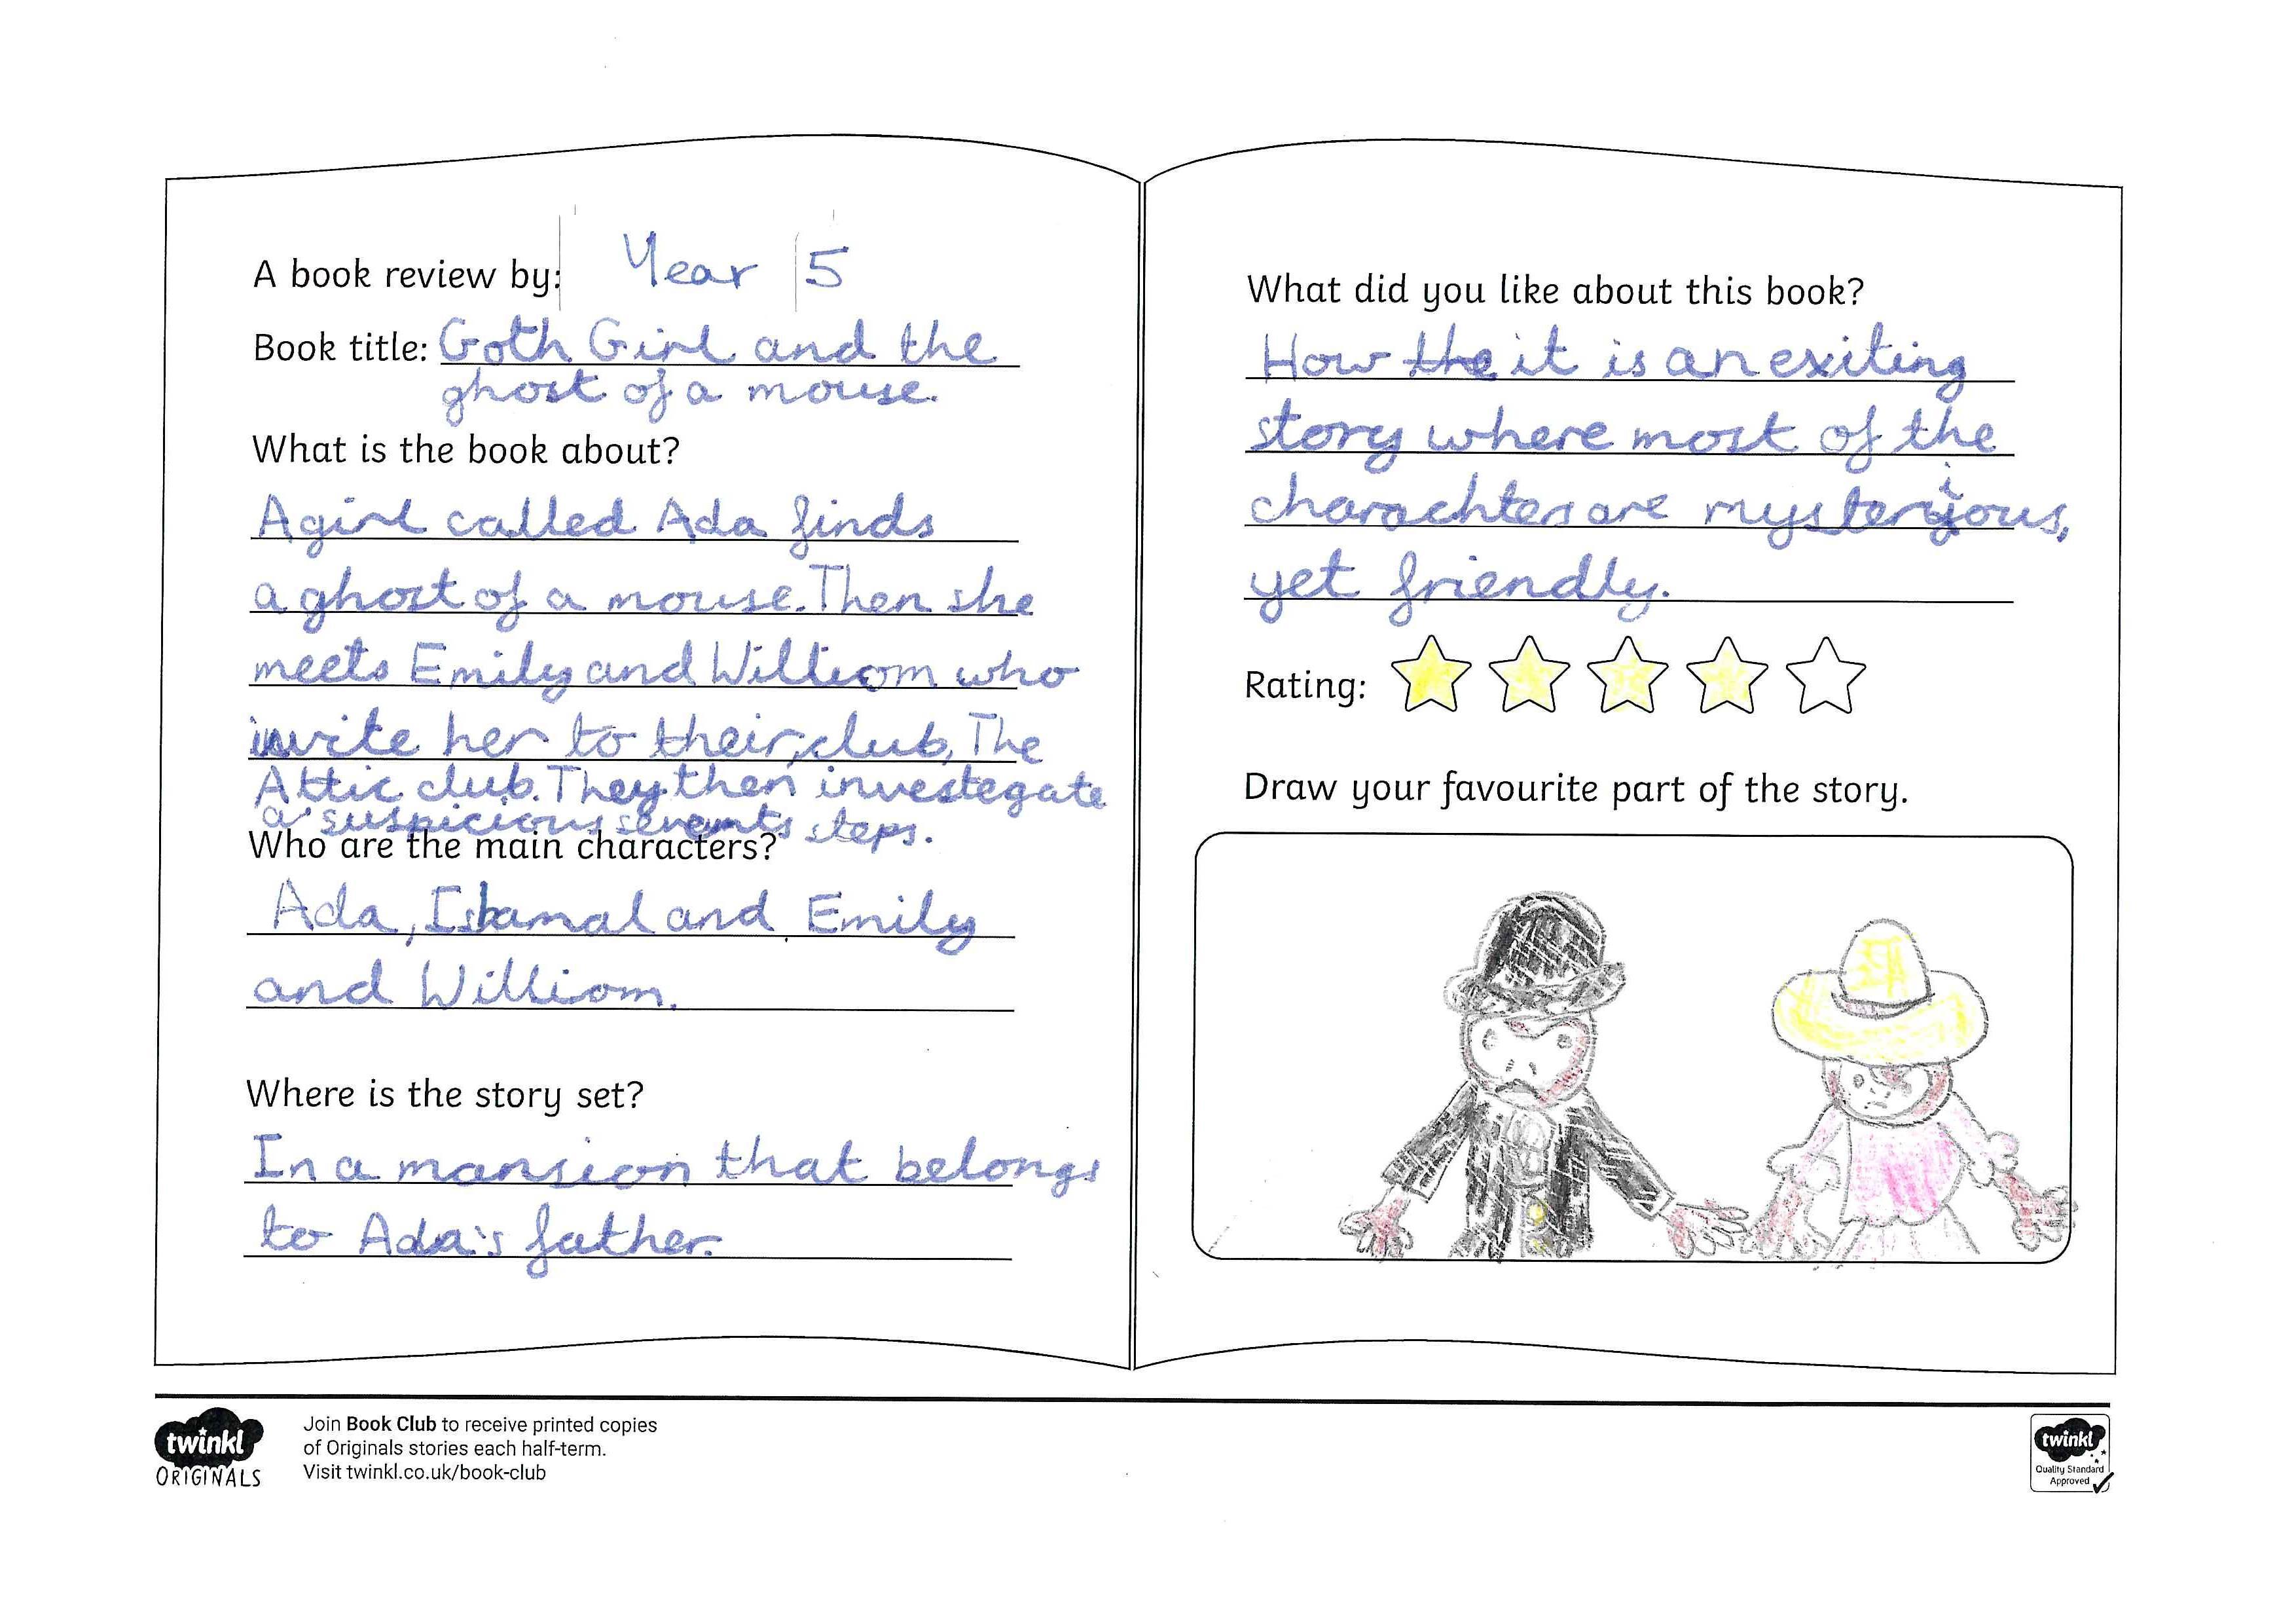 A book review by: Year 5
Book title: Goth Girl and the
ghost of a mouse.
What is the book about?
A girl called Ada finds
a ghost of a mouse. Then she
meets Emily and William who
invite her to their club, The
Attic club. They then investegate
a suspicious servants steps.
Who are the main characters?
Ada, and Emily
and William.
Where is the story set?
In a mansion that belongs
to Ada's father.
What did you like about this book?
How the it is an exiting
story where most of the
charachters are mysterious,
yet friendly.
Rating:
Draw your favourite part of the story.
twinkl
ORIGINALS
Join Book Club to receive printed copies
of Originals stories each half-term.
Visit twinkl.co.uk/book-club
twinkl
Quality Standard
Approved